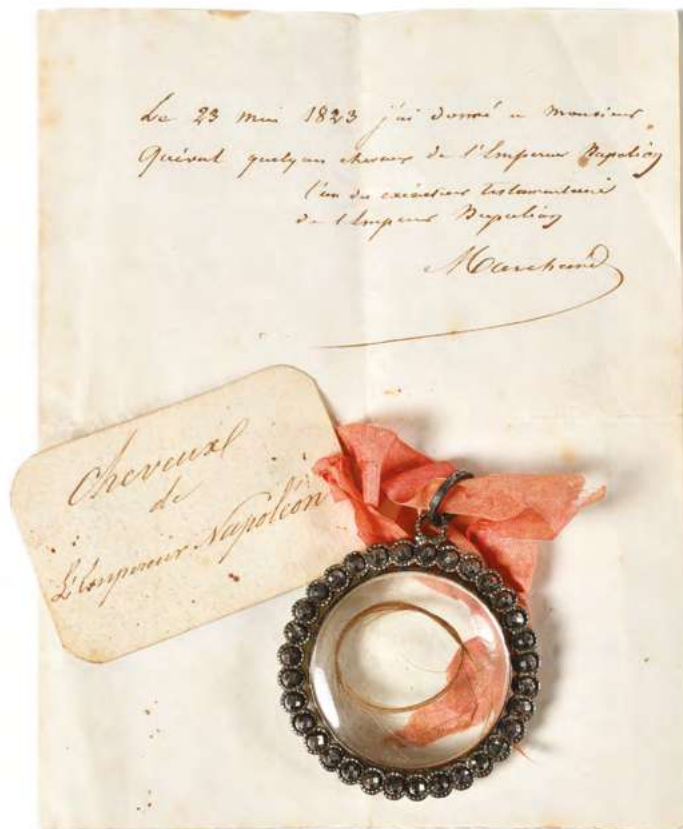 Le 23 mai 1823 j'ai donné a Monsieur
quelques cheveux de l'Empereur Napoléon
l'un des exécuteurs testamentaire
de l'Empereur Napoléon
Marchand
Cheveux
de
L'Empereur Napoléon